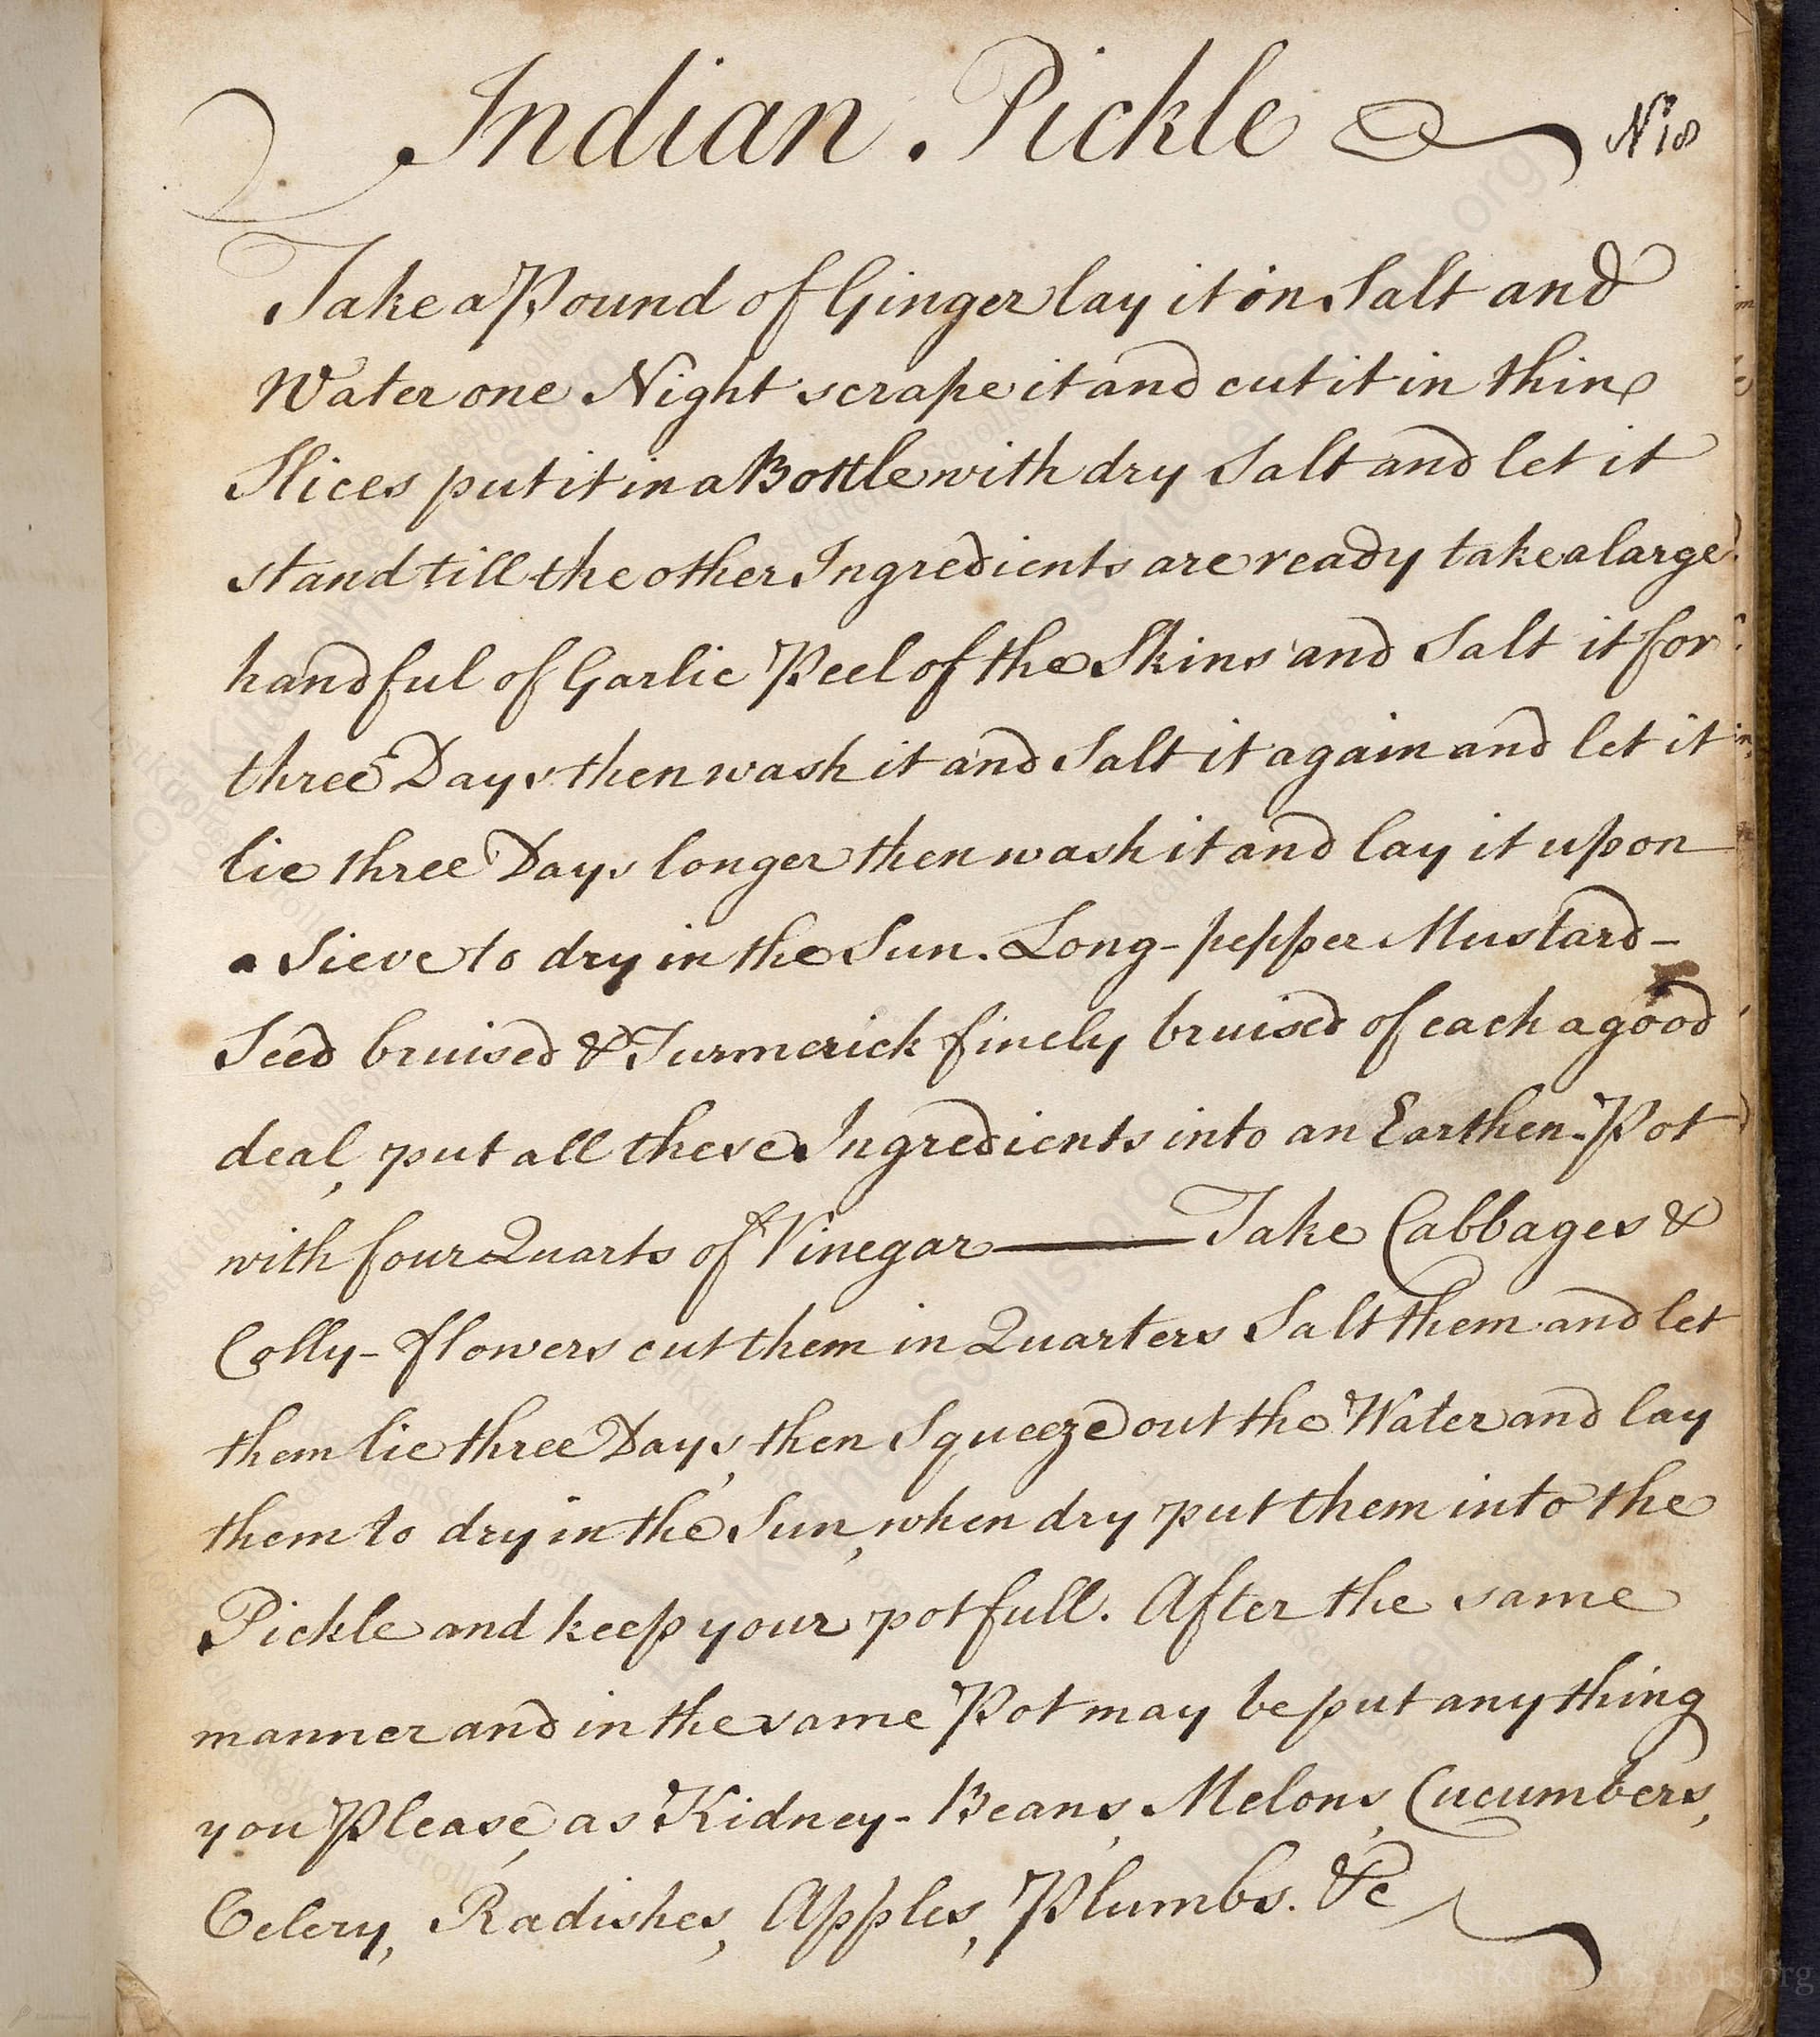 Indian. Pickle No 18
Take a Pound of Ginger lay it in Salt and
Water one Night scrape it and cut it in thin
Slices put it in a Bottle with dry Salt and let it
stand till the other Ingredients are ready take a large
handful of Garlic Peel of the Skins and Salt it for
three Days then wash it and Salt it again and let it
lie three Days longer then wash it and lay it upon
a Sieve to dry in the Sun. Long-pepper Mustard-
Seed bruised & Turmerick finely bruised of each a good
deal, put all these Ingredients into an Earthen-Pot
with four Quarts of Vinegar—Take Cabbages &
Colly-flowers cut them in Quarters Salt them and let
them lie three Days, then Squeeze out the Water and lay
them to dry in the Sun, when dry put them into the
Pickle and keep your pot full. After the same
manner and in the same Pot may be put any thing
you Please, as Kidney-Beans, Melons, Cucumbers,
Celery, Radishes, Apples, Plumbs. &c
LostKitchenScrolls.org